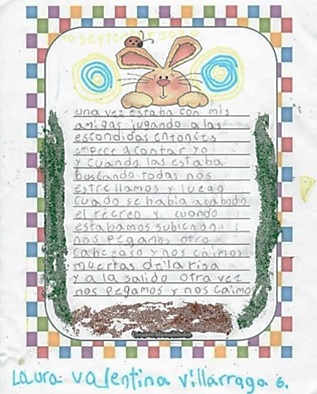 una vez estaba con mis
amigas jugando a las
escondidas entonces
empece a contar yo
y cuando las estaba
buscando todas nos
estrellamos y luego
cuado se habia acabado
el recreo y cuando
estabamos subiendo
nos pegamos otro
cabezaso y nos caimos
muertas de la risa
y a la salido otra vez
nos pegamos y nos caimo
Laura valentina villarraga 6.